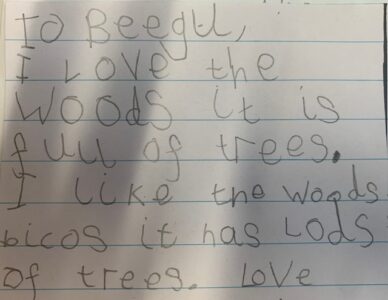 to Beegu,
I LOVE the
WOODS it is
full of trees.
I like the woods
bicos it has Lods
of trees. LOVE